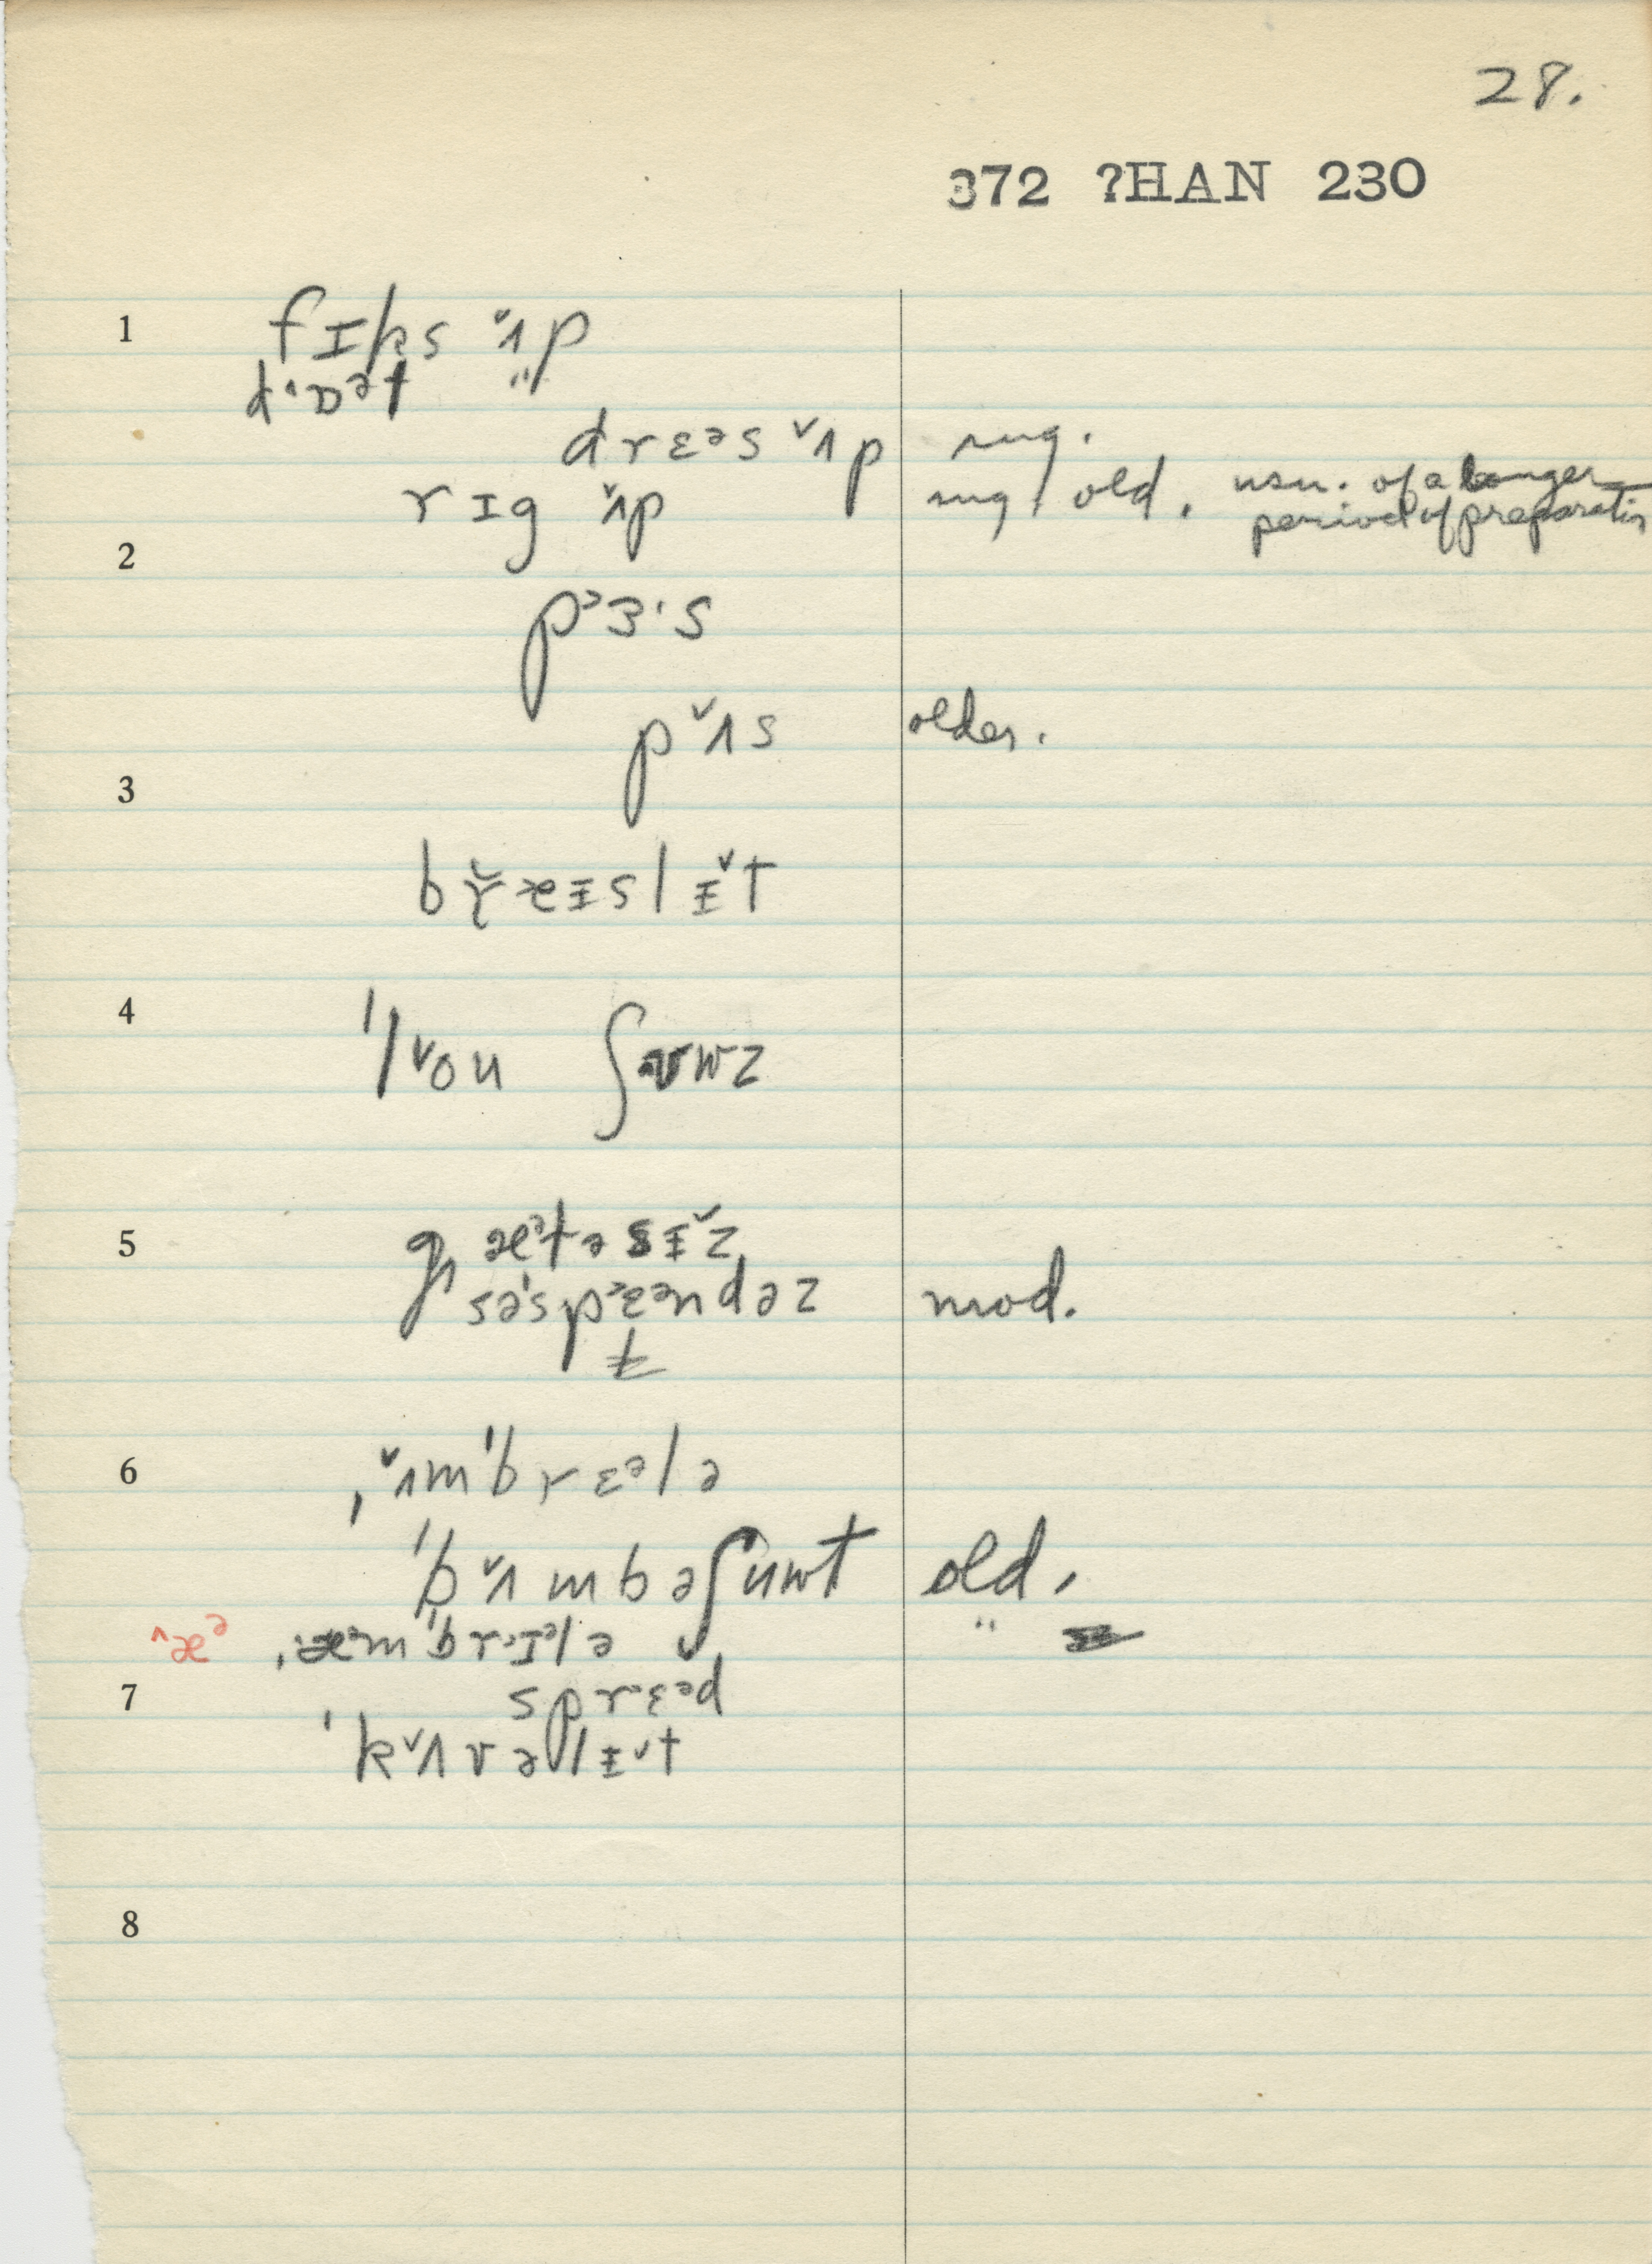 28.
372 ?HAN 230
1 fɪks ʌ̌p
dˈɒᵊl "
drɛᵊs ˇʌp sug.
rɪg ʌ̌p sug. old. usu. of a longer period of preparation
2
pᵊɜ·s
pˇʌs older.
3
br̆æɪslɨ̌t
4
'lˇou ʃɐwz
5 gæᵊtəsɨ̌z
səˈspᵊɛᵊndəz mod.
t
6 ˌˇʌmˈbrɛᵊlə
'bˇʌmbəʃuwt old.
^æᵊ ˌæᵊmˈbrɪᵊlə "
7 sprɛᵊd
'kˇʌvəlɨˇt
8